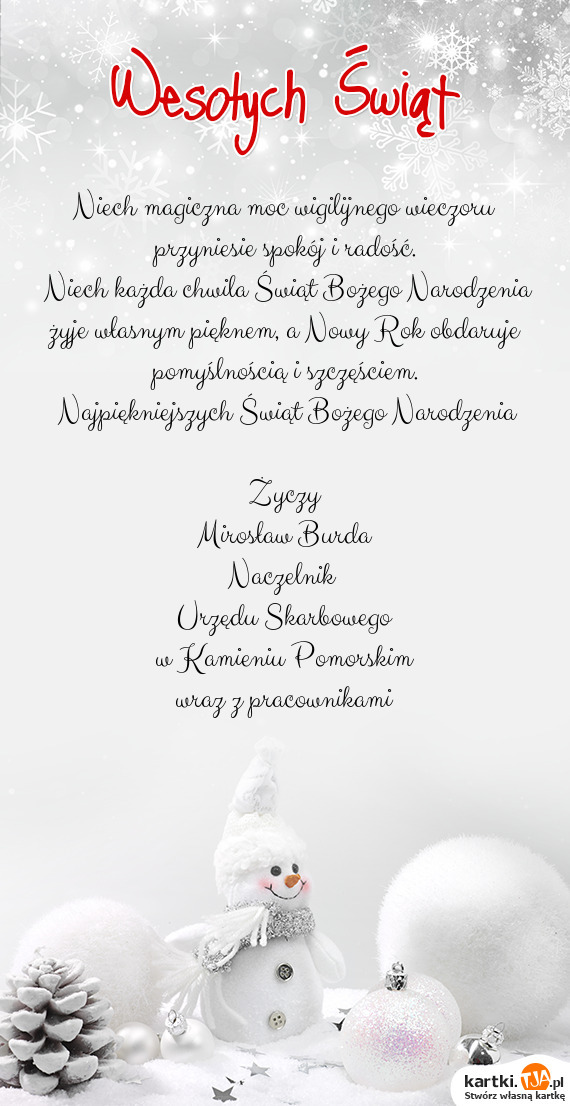 Wesołych Świąt
Niech magiczna moc wigilijnego wieczoru
przyniesie spokój i radość.
Niech każda chwila Świąt Bożego Narodzenia
żyje własnym pięknem, a Nowy Rok obdaruje
pomyślnością i szczęściem.
Najpiękniejszych Świąt Bożego Narodzenia
Życzy
Mirosław Burda
Naczelnik
Urzędu Skarbowego
w Kamieniu Pomorskim
wraz z pracownikami
kartki.TJA.pl
Stwórz własną kartkę